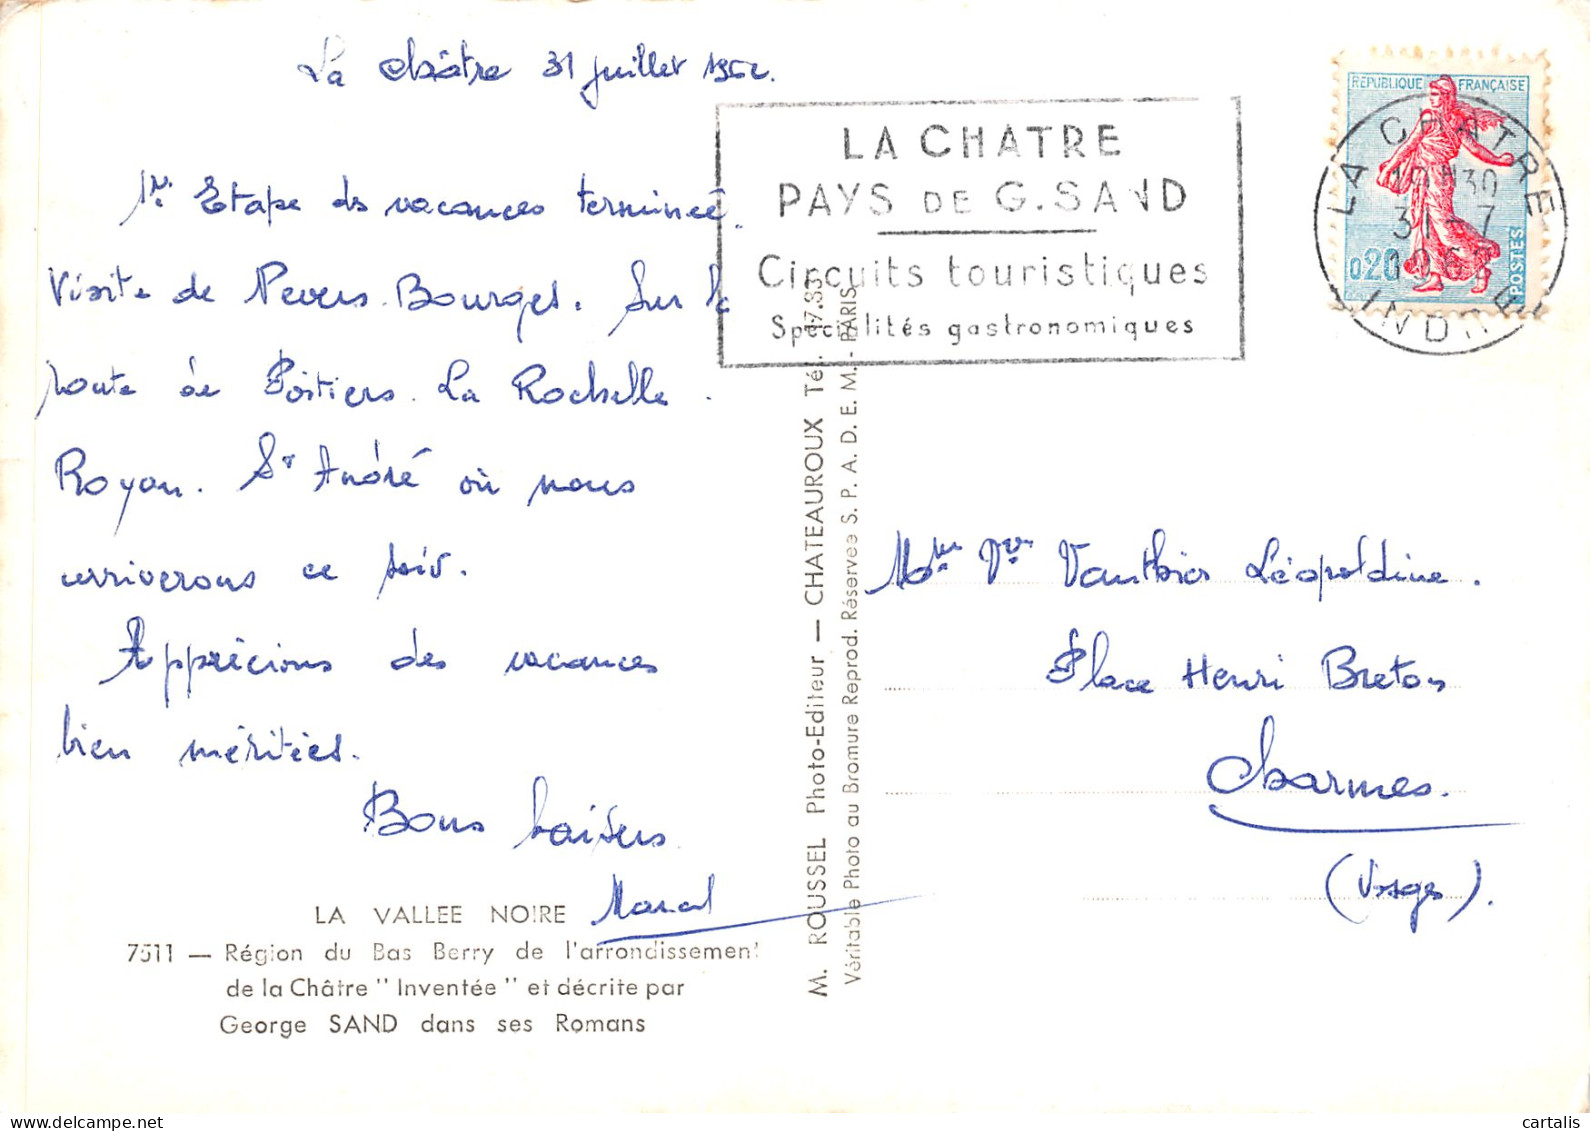 La Châtre 31 juillet 1962.
1re Etape des vacances terminée
Visite de Nevers. Bourges. Sur la
route de Poitiers. La Rochelle.
Royan. St André où nous
arriverons ce soir.
Apprécions des vacances
bien méritées.
Bons baisers
Marcel
LA VALLEE NOIRE
7511 — Région du Bas Berry de l'arrondissement
de la Châtre " Inventée " et décrite par
George SAND dans ses Romans
M. ROUSSEL Photo-Editeur — CHATEAUROUX Tél. 17.33
Véritable Photo au Bromure Reprod. Réservée S. P. A. D. E. M. - PARIS
LA CHATRE
PAYS DE G. SAND
Circuits touristiques
Spécialités gastronomiques
REPUBLIQUE FRANÇAISE
0,20
POSTES
LA CHATRE
19H30
31 - 7
INDRE
Mme Vve Vauthier Léopoldine.
Place Henri Breton
Charmes.
(Vosges).
cartalis
delcampe.net